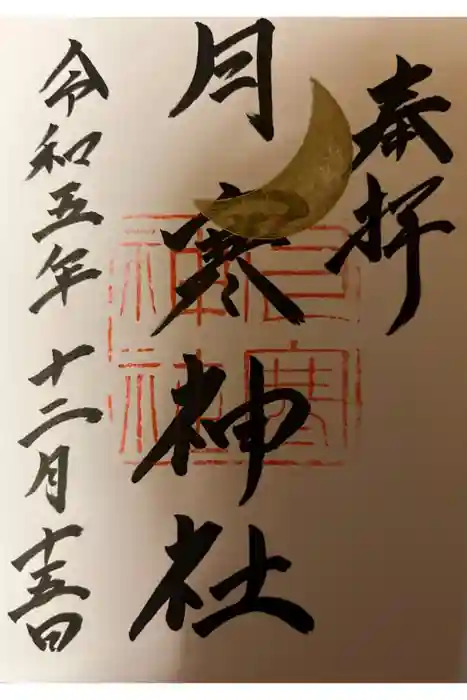 奉拝
月寒神社
月寒神社
令和五年十二月十五日